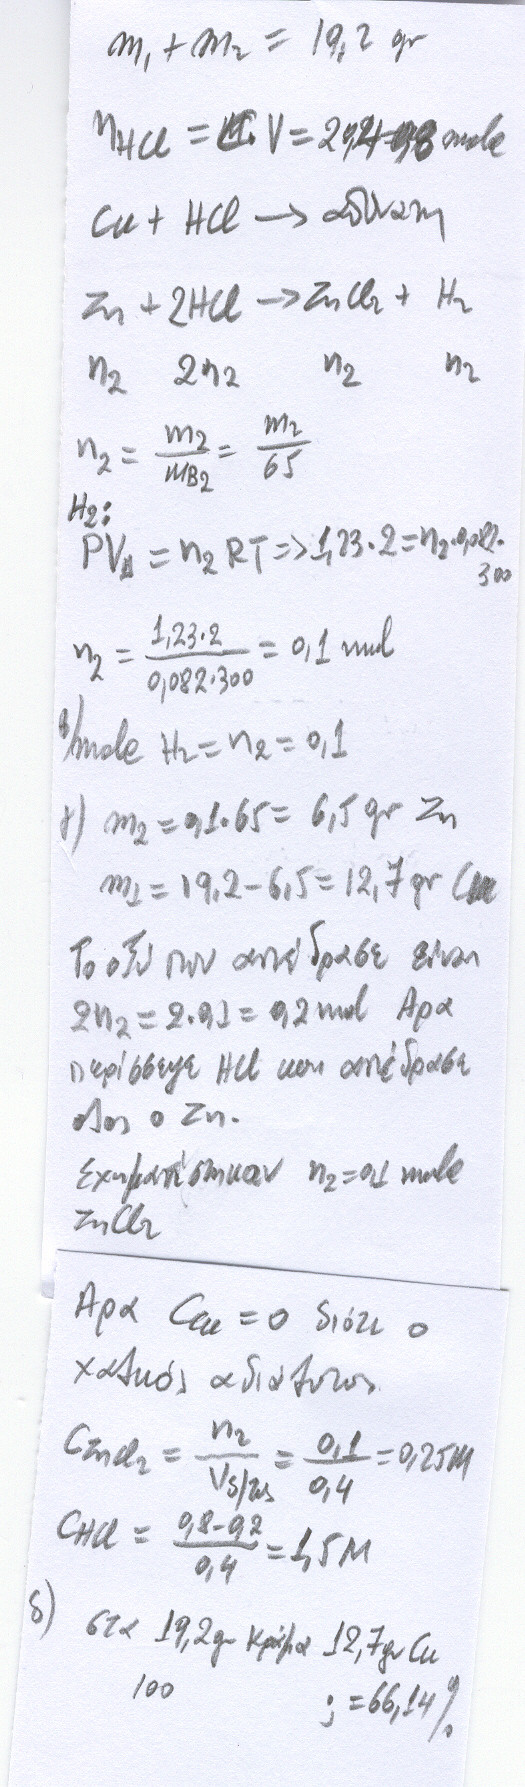 m₁ + m₂ = 19,2 gr
nHCl = C·V = 2·0,4=0,8 mole
Cu + HCl → αδύνατη
Zn + 2HCl → ZnCl₂ + H₂
n₂ 2n₂ n₂ n₂
n₂ = m₂/MB₂ = m₂/65
H₂:
PV = n₂RT => 1,23·2 = n₂·0,082·300
n₂ = 1,23·2/0,082·300 = 0,1 mol
β) mole H₂ = n₂ = 0,1
γ) m₂ = 0,1·65 = 6,5 gr Zn
m₁ = 19,2-6,5 = 12,7 gr Cu
Το οξύ που αντέδρασε είναι
2n₂ = 2·0,1 = 0,2 mol Αρα
περίσσεψε HCl και αντέδρασε
όλος ο Zn.
Σχηματίστηκαν n₂=0,1 mole
ZnCl₂
Αρα CCu = 0 διότι ο
χαλκός αδιάλυτος
CZnCl₂ = n₂/Vδ/τος = 0,1/0,4 = 0,25M
CHCl = 0,8-0,2/0,4 = 1,5M
δ) στα 19,2gr κράμα 12,7gr Cu
100 ; = 66,14%